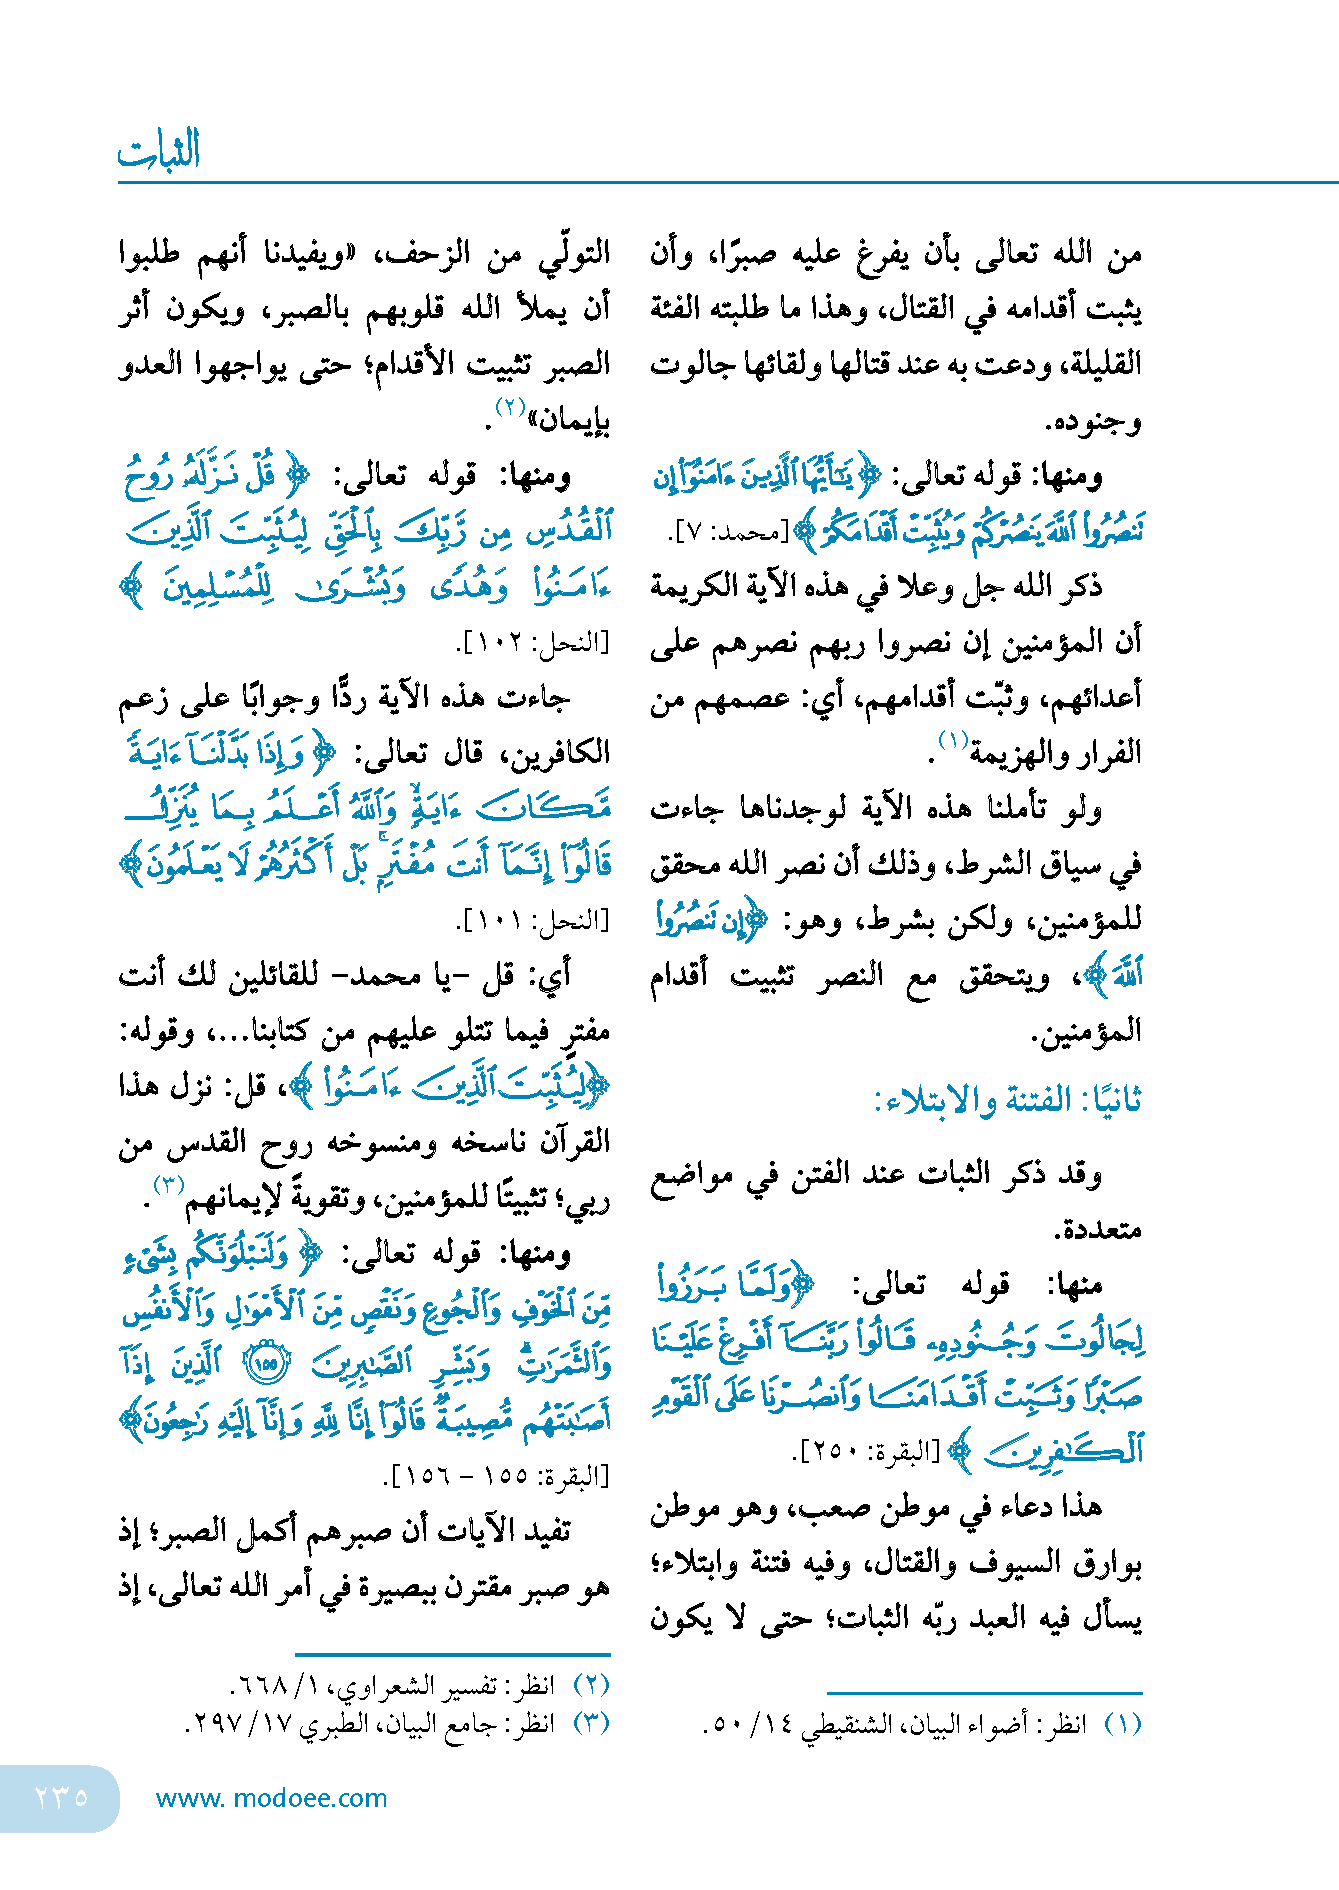 الثبات
من الله تعالى بأن يفرغ عليه صبرًا، وأن
يثبت أقدامه في القتال، وهذا ما طلبته الفئة
القليلة، ودعت به عند قتالها ولقائها جالوت
وجنوده.
ومنها: قوله تعالى: ﴿يَٰٓأَيُّهَا ٱلَّذِينَ ءَامَنُوٓا۟ إِن
تَنصُرُوا۟ ٱللَّهَ يَنصُرْكُمْ وَيُثَبِّتْ أَقْدَامَكُمْ﴾ [محمد: ٧].
ذكر الله جل وعلا في هذه الآية الكريمة
أن المؤمنين إن نصروا ربهم نصرهم على
أعدائهم، وثبّت أقدامهم، أي: عصمهم من
الفرار والهزيمة(١).
ولو تأملنا هذه الآية لوجدناها جاءت
في سياق الشرط، وذلك أن نصر الله محقق
للمؤمنين، ولكن بشرط، وهو: ﴿إِن تَنصُرُوا۟
ٱللَّهَ﴾، ويتحقق مع النصر تثبيت أقدام
المؤمنين.
ثانيًا: الفتنة والابتلاء:
وقد ذكر الثبات عند الفتن في مواضع
متعددة.
منها: قوله تعالى: ﴿وَلَمَّا بَرَزُوا۟
لِجَالُوتَ وَجُنُودِهِۦ قَالُوا۟ رَبَّنَآ أَفْرِغْ عَلَيْنَا
صَبْرًا وَثَبِّتْ أَقْدَامَنَا وَٱنصُرْنَا عَلَى ٱلْقَوْمِ
ٱلْكَٰفِرِينَ﴾ [البقرة: ٢٥٠].
هذا دعاء في موطن صعب، وهو موطن
بوارق السيوف والقتال، وفيه فتنة وابتلاء؛
يسأل فيه العبد ربّه الثبات؛ حتى لا يكون
(١) انظر: أضواء البيان، الشنقيطي ١٤/ ٥٠.
التولّي من الزحف، «ويفيدنا أنهم طلبوا
أن يملأ الله قلوبهم بالصبر، ويكون أثر
الصبر تثبيت الأقدام؛ حتى يواجهوا العدو
بإيمان»(٢).
ومنها: قوله تعالى: ﴿قُلْ نَزَّلَهُۥ رُوحُ
ٱلْقُدُسِ مِن رَّبِّكَ بِٱلْحَقِّ لِيُثَبِّتَ ٱلَّذِينَ
ءَامَنُوا۟ وَهُدًى وَبُشْرَىٰ لِلْمُسْلِمِينَ﴾
[النحل: ١٠٢].
جاءت هذه الآية ردًّا وجوابًا على زعم
الكافرين، قال تعالى: ﴿وَإِذَا بَدَّلْنَآ ءَايَةً
مَّكَانَ ءَايَةٍ وَٱللَّهُ أَعْلَمُ بِمَا يُنَزِّلُ
قَالُوٓا۟ إِنَّمَآ أَنتَ مُفْتَرٍۭ بَلْ أَكْثَرُهُمْ لَا يَعْلَمُونَ﴾
[النحل: ١٠١].
أي: قل -يا محمد- للقائلين لك أنت
مفترٍ فيما تتلو عليهم من كتابنا...، وقوله:
﴿لِيُثَبِّتَ ٱلَّذِينَ ءَامَنُوا۟﴾، قل: نزل هذا
القرآن ناسخه ومنسوخه روح القدس من
ربي؛ تثبيتًا للمؤمنين، وتقويةً لإيمانهم(٣).
ومنها: قوله تعالى: ﴿وَلَنَبْلُوَنَّكُم بِشَىْءٍ
مِّنَ ٱلْخَوْفِ وَٱلْجُوعِ وَنَقْصٍ مِّنَ ٱلْأَمْوَٰلِ وَٱلْأَنفُسِ
وَٱلثَّمَرَٰتِ ۗ وَبَشِّرِ ٱلصَّٰبِرِينَ ١٥٥ ٱلَّذِينَ إِذَآ
أَصَٰبَتْهُم مُّصِيبَةٌ قَالُوٓا۟ إِنَّا لِلَّهِ وَإِنَّآ إِلَيْهِ رَٰجِعُونَ﴾
[البقرة: ١٥٥ - ١٥٦].
تفيد الآيات أن صبرهم أكمل الصبر؛ إذ
هو صبر مقترن ببصيرة في أمر الله تعالى، إذ
(٢) انظر: تفسير الشعراوي، ١/ ٦٦٨.
(٣) انظر: جامع البيان، الطبري ١٧/ ٢٩٧.
www. modoee.com
٢٣٥